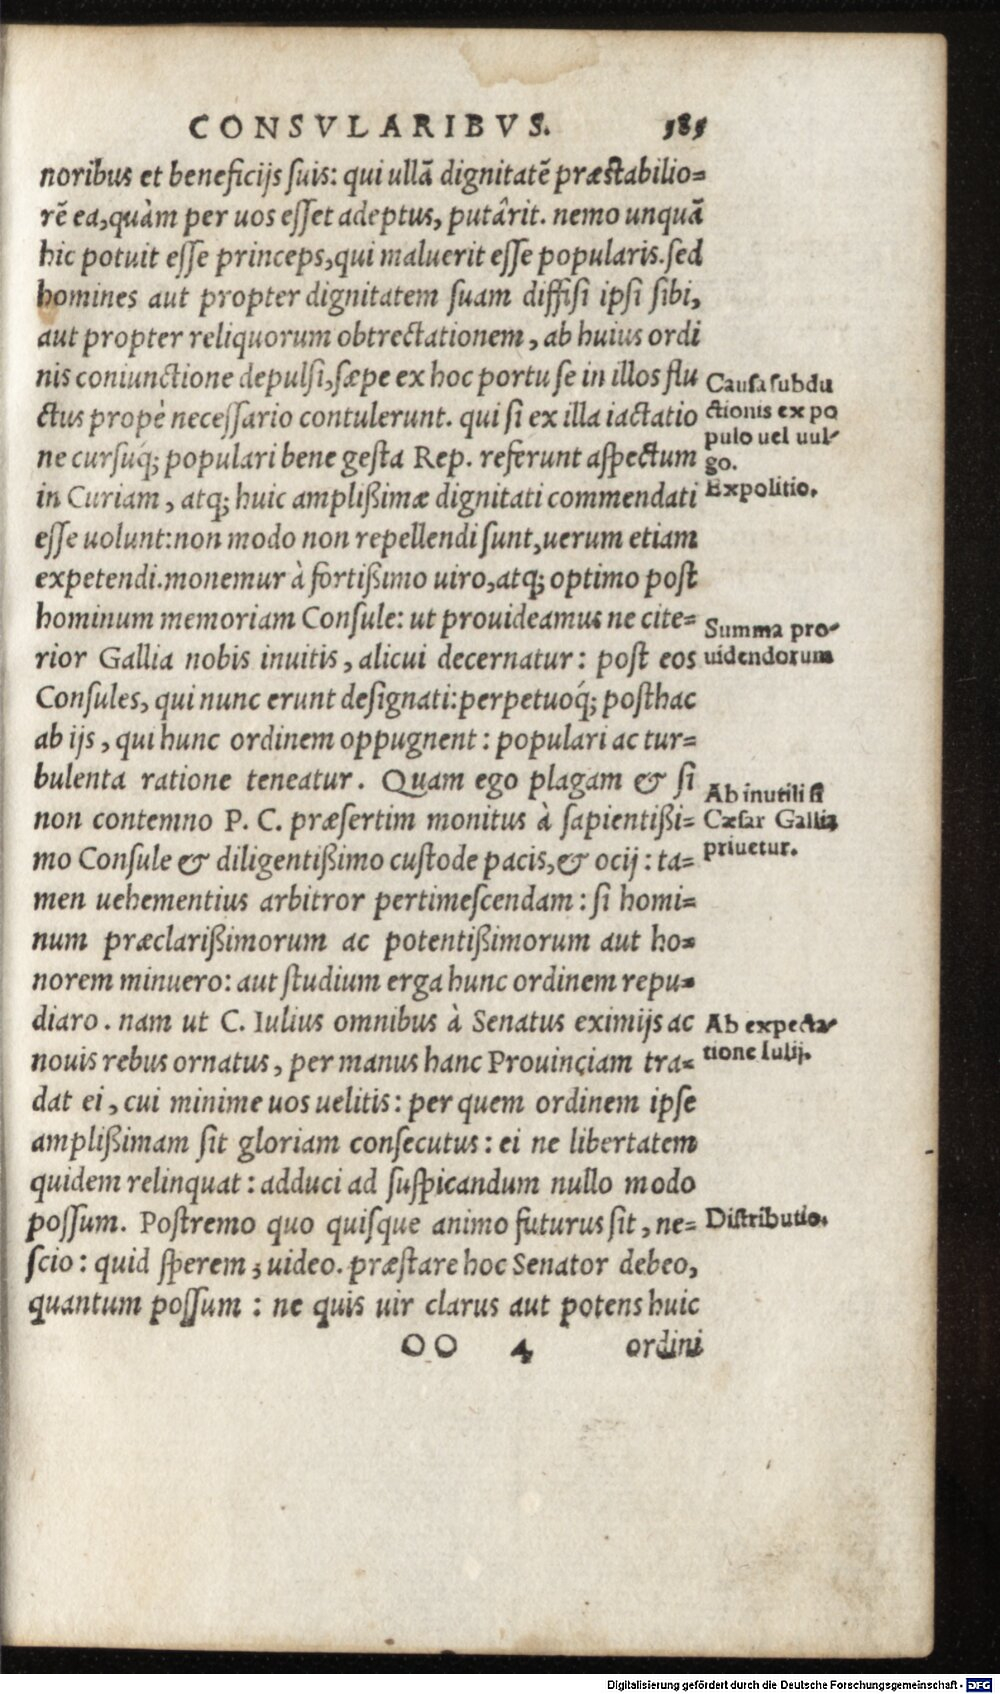 CONSVLARIBVS. 585
noribus et beneficijs suis: qui ullā dignitatē præstabilio=
rē ea, quàm per uos esset adeptus, putârit. nemo unquā
hic potuit esse princeps, qui maluerit esse popularis. sed
homines aut propter dignitatem suam diffisi ipsi sibi,
aut propter reliquorum obtrectationem, ab huius ordi
nis coniunctione depulsi, sæpe ex hoc portu se in illos flu
ctus propè necessario contulerunt. qui si ex illa iactatio
ne cursúq; populari bene gesta Rep. referunt aspectum
in Curiam, atq; huic amplißimæ dignitati commendati
esse uolunt: non modo non repellendi sunt, uerum etiam
expetendi. monemur à fortißimo uiro, atq; optimo post
hominum memoriam Consule: ut prouideamus ne cite=
rior Gallia nobis inuitis, alicui decernatur: post eos
Consules, qui nunc erunt designati: perpetuoq́; posthac
ab ijs, qui hunc ordinem oppugnent: populari ac tur=
bulenta ratione teneatur. Quam ego plagam & si
non contemno P. C. præsertim monitus à sapientißi=
mo Consule & diligentißimo custode pacis, & ocij: ta=
men uehementius arbitror pertimescendam: si homi=
num præclarißimorum ac potentißimorum aut ho=
norem minuero: aut studium erga hunc ordinem repu=
diaro. nam ut C. Iulius omnibus à Senatus eximijs ac
nouis rebus ornatus, per manus hanc Prouinciam tra=
dat ei, cui minime uos uelitis: per quem ordinem ipse
amplißimam sit gloriam consecutus: ei ne libertatem
quidem relinquat: adduci ad suspicandum nullo modo
possum. Postremo quo quisque animo futurus sit, ne=
scio: quid sperem; uideo. præstare hoc Senator debeo,
quantum possum: ne quis uir clarus aut potens huic
OO 4 ordini
Causa subdu
ctionis ex po
pulo uel uul-
go.
Expolitio.
Summa pro-
uidendorum
Ab inutili si
Cæsar Gallia
priuetur.
Ab expecta-
tione Iulij.
Distributio.
Digitalisierung gefördert durch die Deutsche Forschungsgemeinschaft - DFG